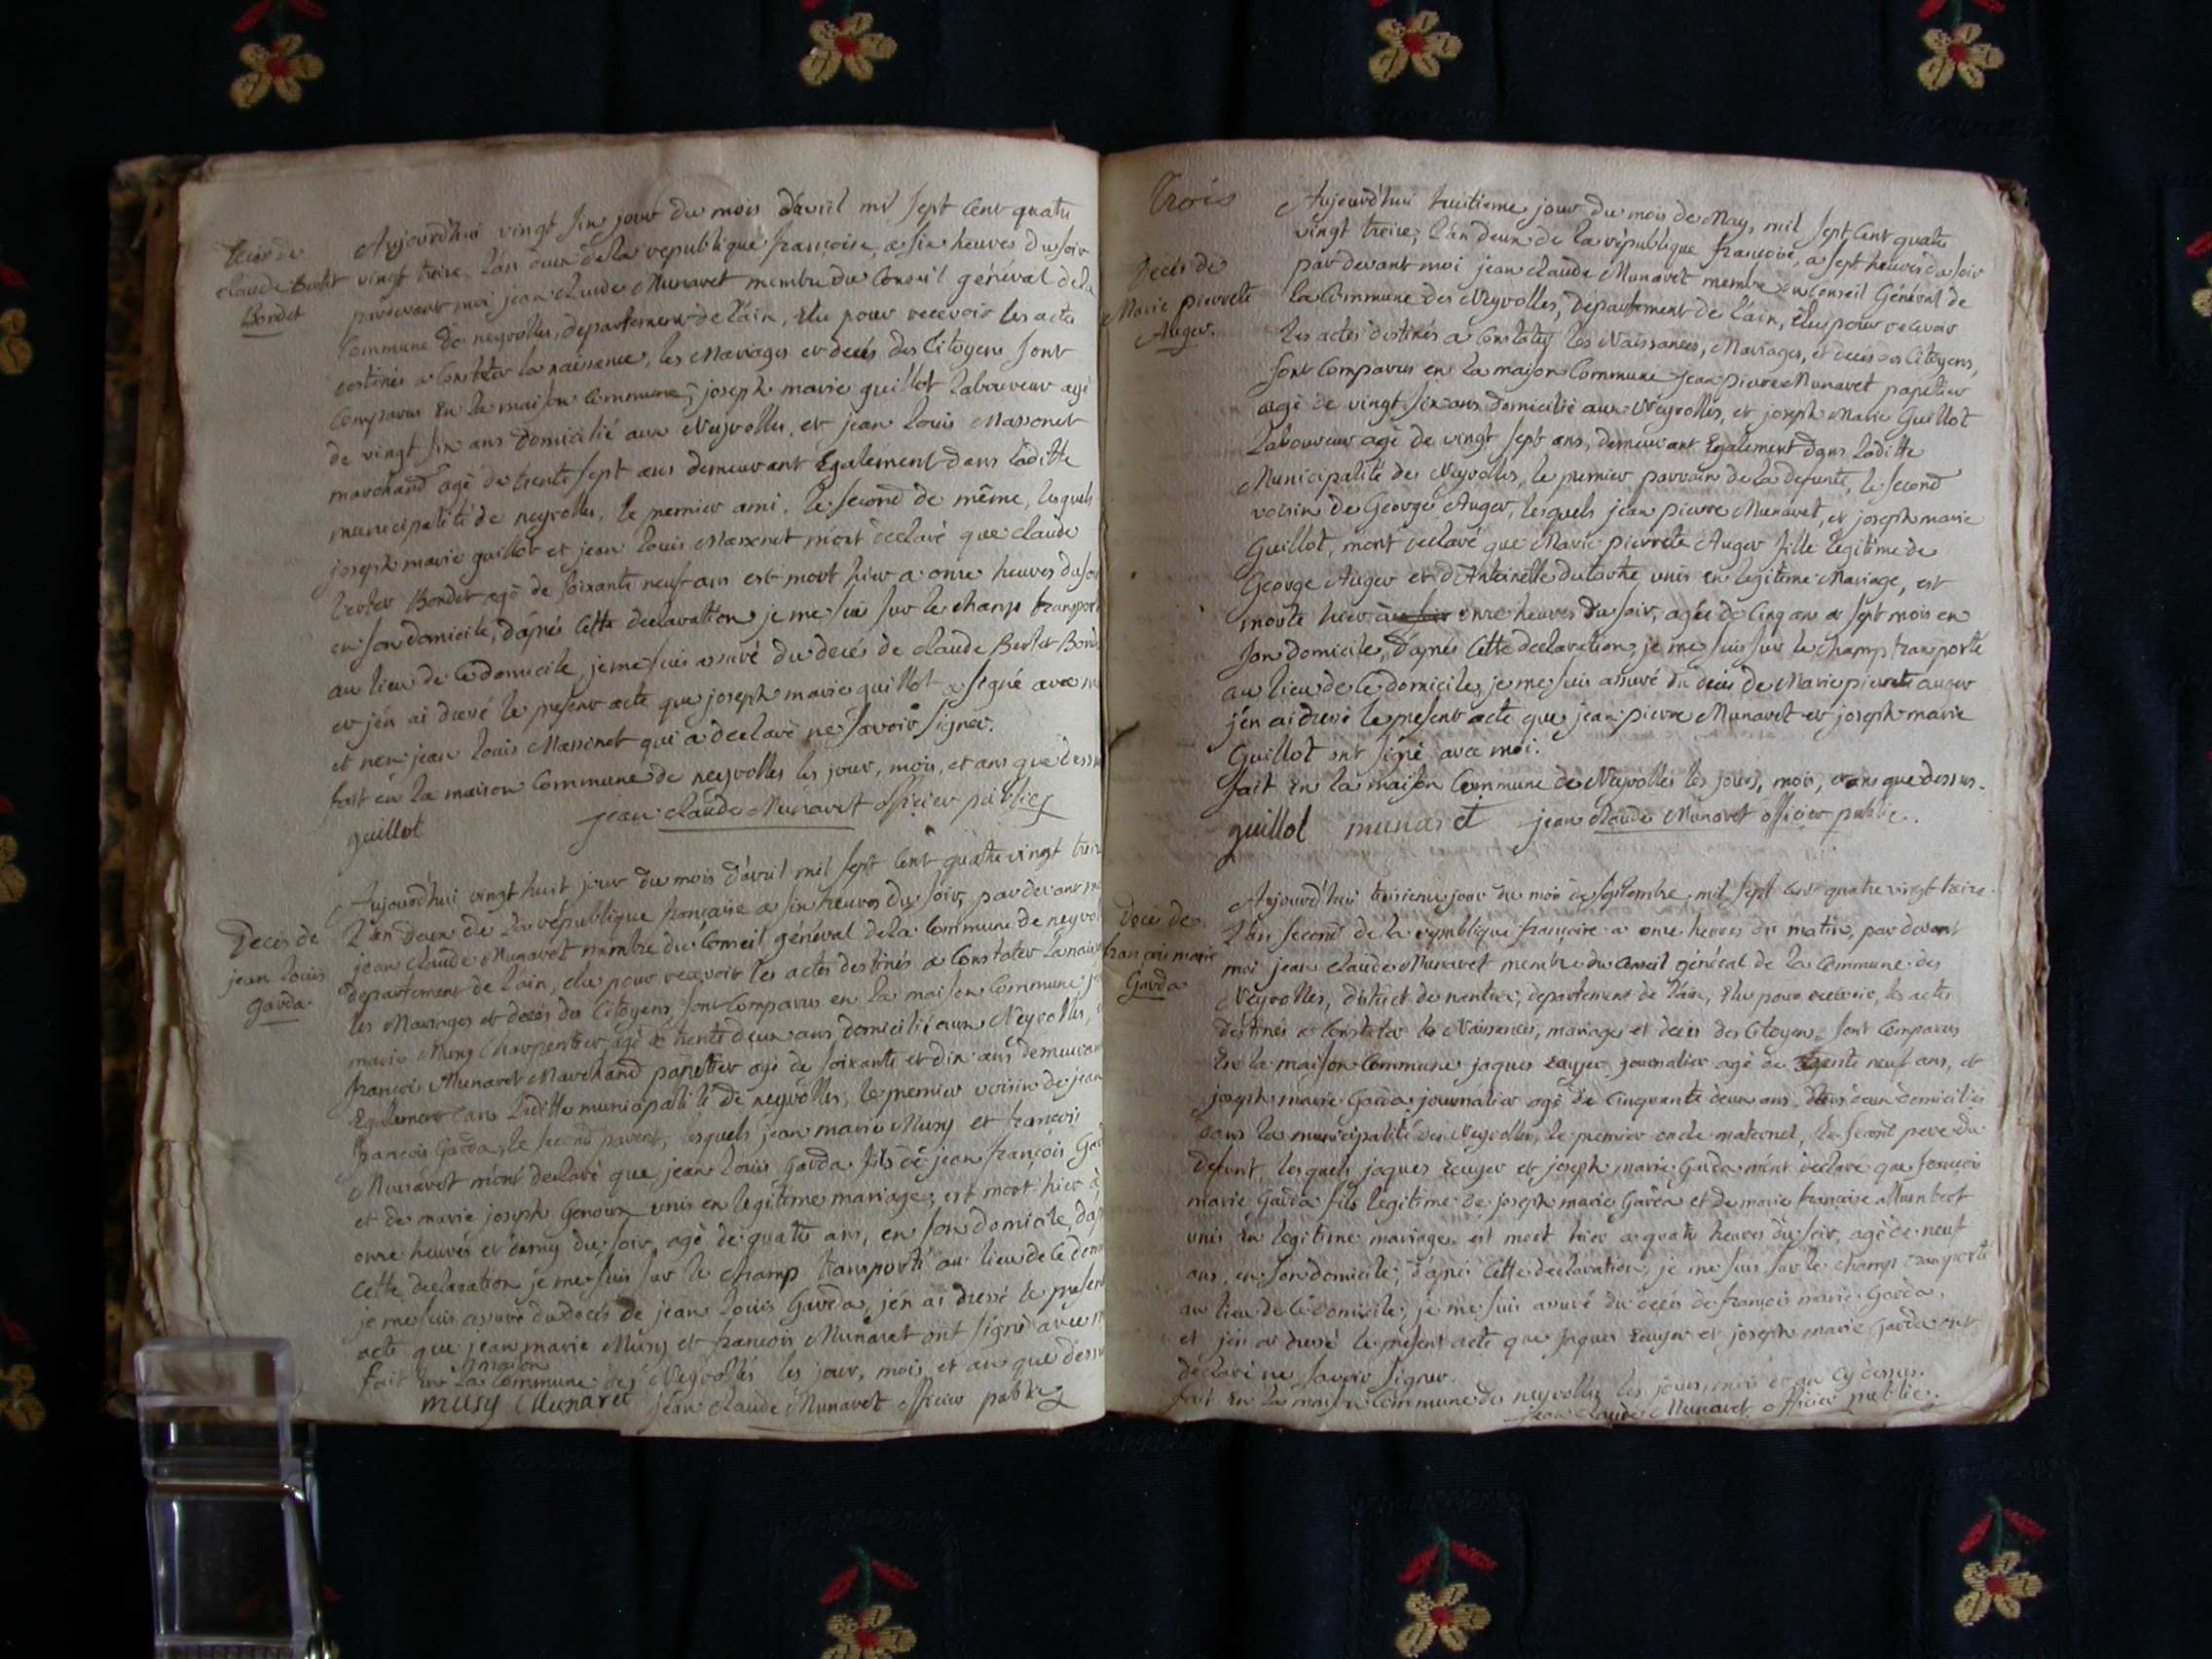 Decès de
Claude Berlet
Bondet
Aujourd'hui vingt six jour du mois d'avril mil sept cent quatre
vingt treize, l'an deux de la republique françoise, a six heures du soir
pardevant moi jean claude Munaret membre du Conseil général dela
Commune de neyrolles, departement de l'ain, élu pour recevoir les actes
destinés a Constater la naissance, les Mariages et decès des Citoyens sont
Comparus En la maison Commune, joseph marie guillot laboureur agé
de vingt six ans domicilié aux Neyrolles, et jean louis Massonet
marchand agé de trente sept ans demeurant Egalement dans laditte
municipalité de neyrolles, le premier ami, le second de même, lesquels
joseph marie guillot et jean louis Massonet m'ont déclaré que claude
berlet Bondet agé de soixante neuf ans est mort hier a onze heures du soir
en son domicile, d'aprés Cette declaration je me suis sur le champ transporté
au lieu de ce domicile, je me suis assuré du decés de claude Berlet Bondet
et j'en ai dressé le present acte que joseph marie guillot a signé avec moi
et non jean louis Massonet qui a declaré ne savoir signer.
fait en la maison Commune de neyrolles les jour, mois, et ans que dessus
guillot jean claude Munaret officier public
Decès de
jean louis
Garda
Aujourd'hui vingt huit jour du mois d'avril mil sept cent quatre vingt treize
L'an deux de la république françoise a six heures du soir, pardevant moi
jean claude Munaret membre du Conseil général dela Commune de neyrolles
departement de l'ain, élu pour recevoir les actes destinés a Constater la naissance
les Mariages et decés des Citoyens, sont Comparus en la maison Commune, jean
marie Musy Charpentier agé de trente deux ans, domicilié aux Neyrolles, et
françois Munaret Marchand papetier agé de soixante et dix ans demeurant
Egalement dans laditte municipalité de neyrolles, le premier voisin de jean
françois Garda, le second parent, lesquels jean marie Musy et françois
Munaret m'ont declaré que jean louis Garda fils de jean françois Garda
et de marie joseph Genoux unis en legitime mariage, est mort hier à
onze heures et demy du soir, agé de quatre ans, en son domicile, d'aprés
Cette declaration je me suis sur le champ transporté au lieu de ce domicile
je me suis assuré du decés de jean louis Garda, j'en ai dressé le present
acte que jean marie Musy et françois Munaret ont signé avec moi
maison
fait En la Commune des Neyrolles les jour, mois, et an que dessus
musy Munaret jean claude Munaret officier public
Trois
Decés de
Marie pierrete
Auger.
Aujourd'hui huitieme jour du mois de May, mil sept cent quatre
vingt treize, l'an deux de la république françoise, a sept heures du soir
par devant moi jean claude Munaret membre du Conseil Général de
la Commune des Neyrolles, département de l'ain, élu pour recevoir
les actes destinés a Constater les Naissances, Mariages, et decés des Citoyens,
sont Comparus en la maison Commune Jean pierre Munaret papetier
agé de vingt six ans domicilié aux Neyrolles, et joseph Marie Guillot
Laboureur agé de vingt sept ans, demeurant Egalement dans laditte
Municipalité des Neyrolles, le premier parrain de la defunte, le second
voisin de George Auger, lesquels jean pierre Munaret, et joseph marie
Guillot, m'ont declaré que Marie pierrete Auger fille legitime de
George Auger et d'Antoinette dutartre unis en legitime Mariage, est
morte hier à onze heures du soir, agée de Cinq ans et sept mois en
son domicile, d'aprés Cette declaration, je me suis sur le champ transporté
au lieu de ce domicile, je me suis assuré du decés de Marie pierrete auger
j'en ai dressé le present acte que jean pierre Munaret et joseph marie
Guillot ont signé avec moi.
fait En la maison Commune des Neyrolles les jours, mois, et ans que dessus.
guillot munaret jean claude Munaret officier public.
Decés de
françois marie
Garda
Aujourd'hui troisieme jour du mois de septembre mil sept cent quatre vingt treize.
L'an second de la république françoise a onze heures du matin, par devant
moi jean claude Munaret membre du Conseil général de la Commune des
Neyrolles, district de nantua, departement de l'ain, élu pour recevoir, les actes
destinés a Constater les Naissances, mariages et decés des Citoyens, sont Comparus
En la maison Commune jaques Ecuyer journalier agé de trente neuf ans, et
joseph marie Garda journalier agé de Cinquante deux ans, tous deux domiciliés
dans la municipalité des Neyrolles, le premier oncle maternel, le second pere du
defunt, lesquels jaques Ecuyer et joseph marie Garda m'ont declaré que françois
marie Garda fils legitime de joseph marie Garda et de marie françoise
unis En legitime mariage, est mort hier a quatre heures du soir, agé de neuf
ans, en son domicile, d'aprés Cette declaration, je me suis sur le champ transporté
au lieu de ce domicile, je me suis assuré du decés de françois marie Garda,
et j'en ai dressé le present acte que jaques Ecuyer et joseph marie Garda ont
declaré ne savoir signer.
fait En la maison Commune des neyrolles les jours, mois et an cy dessus.
jean claude Munaret officier public.